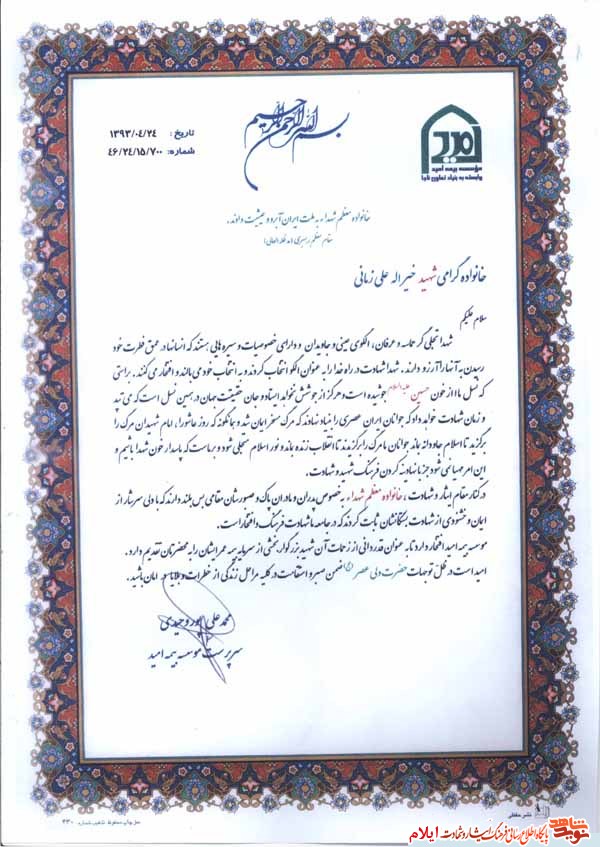 بسم الله الرحمن الرحیم
امید
مؤسسه بیمه امید
وابسته به بنیاد تعاون ناجا
تاریخ : ۱۳۹۳/۰۴/۲۴
شماره: ۴۶/۲۴/۱۵/۷۰۰
خانواده معظم شهداء به ملت ایران آبرو و حیثیت دادند.
مقام معظم رهبری (مدظله العالی)
خانواده گرامی شهید خیراله علی زمانی
سلام علیکم
شهدا تجلی گر حماسه و عرفان، الگوی عینی و جاویدان و دارای خصوصیات و سیره هایی هستند که انسانها در عمق فطرت خود
رسیدن به آنها را آرزو دارند. شهدا شهادت در راه خدا را به عنوان الگو انتخاب کردند و به انتخاب خود می بالند و افتخار می کنند. براستی
که نسل ما از خون حسین علیه السلام جوشیده است و هرگز از جوشش نخواهد ایستاد و جان حقیقت جهان در همین نسل است که می تپد
و زمان شهادت خواهد داد که جوانان ایران عصری را بنیاد نهادند که مرگ مسخر ایمان شد و چنانکه که روز عاشورا، امام شهیدان مرگ را
برگزید تا اسلام جاودانه بماند جوانان ما مرگ را برگزیدند تا انقلاب زنده بماند و نور اسلام متجلی شود و بر ماست که پاسدار خون شهدا باشیم و
این امر مهیا نمی شود جز با نهادینه کردن فرهنگ شهید و شهادت.
در کنار مقام ایثار و شهادت، خانواده معظم شهداء به خصوص پدران و مادران پاک و صبورشان مقامی بس بلند دارند که با دلی سرشار از
ایمان و خشنودی از شهادت بستگانشان ثابت کردند که در جامعه ما شهادت فرهنگ و افتخار است.
موسسه بیمه امید افتخار دارد تا به عنوان قدردانی از زحمات آن شهید بزرگوار، بخشی از سرمایه بیمه عمر ایشان را به محضرتان تقدیم دارد.
امید است در ظل توجهات حضرت ولی عصر (عج) ضمن صبر و استقامت در کلیه مراحل زندگی از خطرات و بلایا در امان باشید.
محمد علی پور وحیدی
سرپرست موسسه بیمه امید
نشر حافظی
تذهیب شماره ۴۳۰
نوید شاهد
پایگاه اطلاع رسانی فرهنگ ایثار و شهادت ایلام